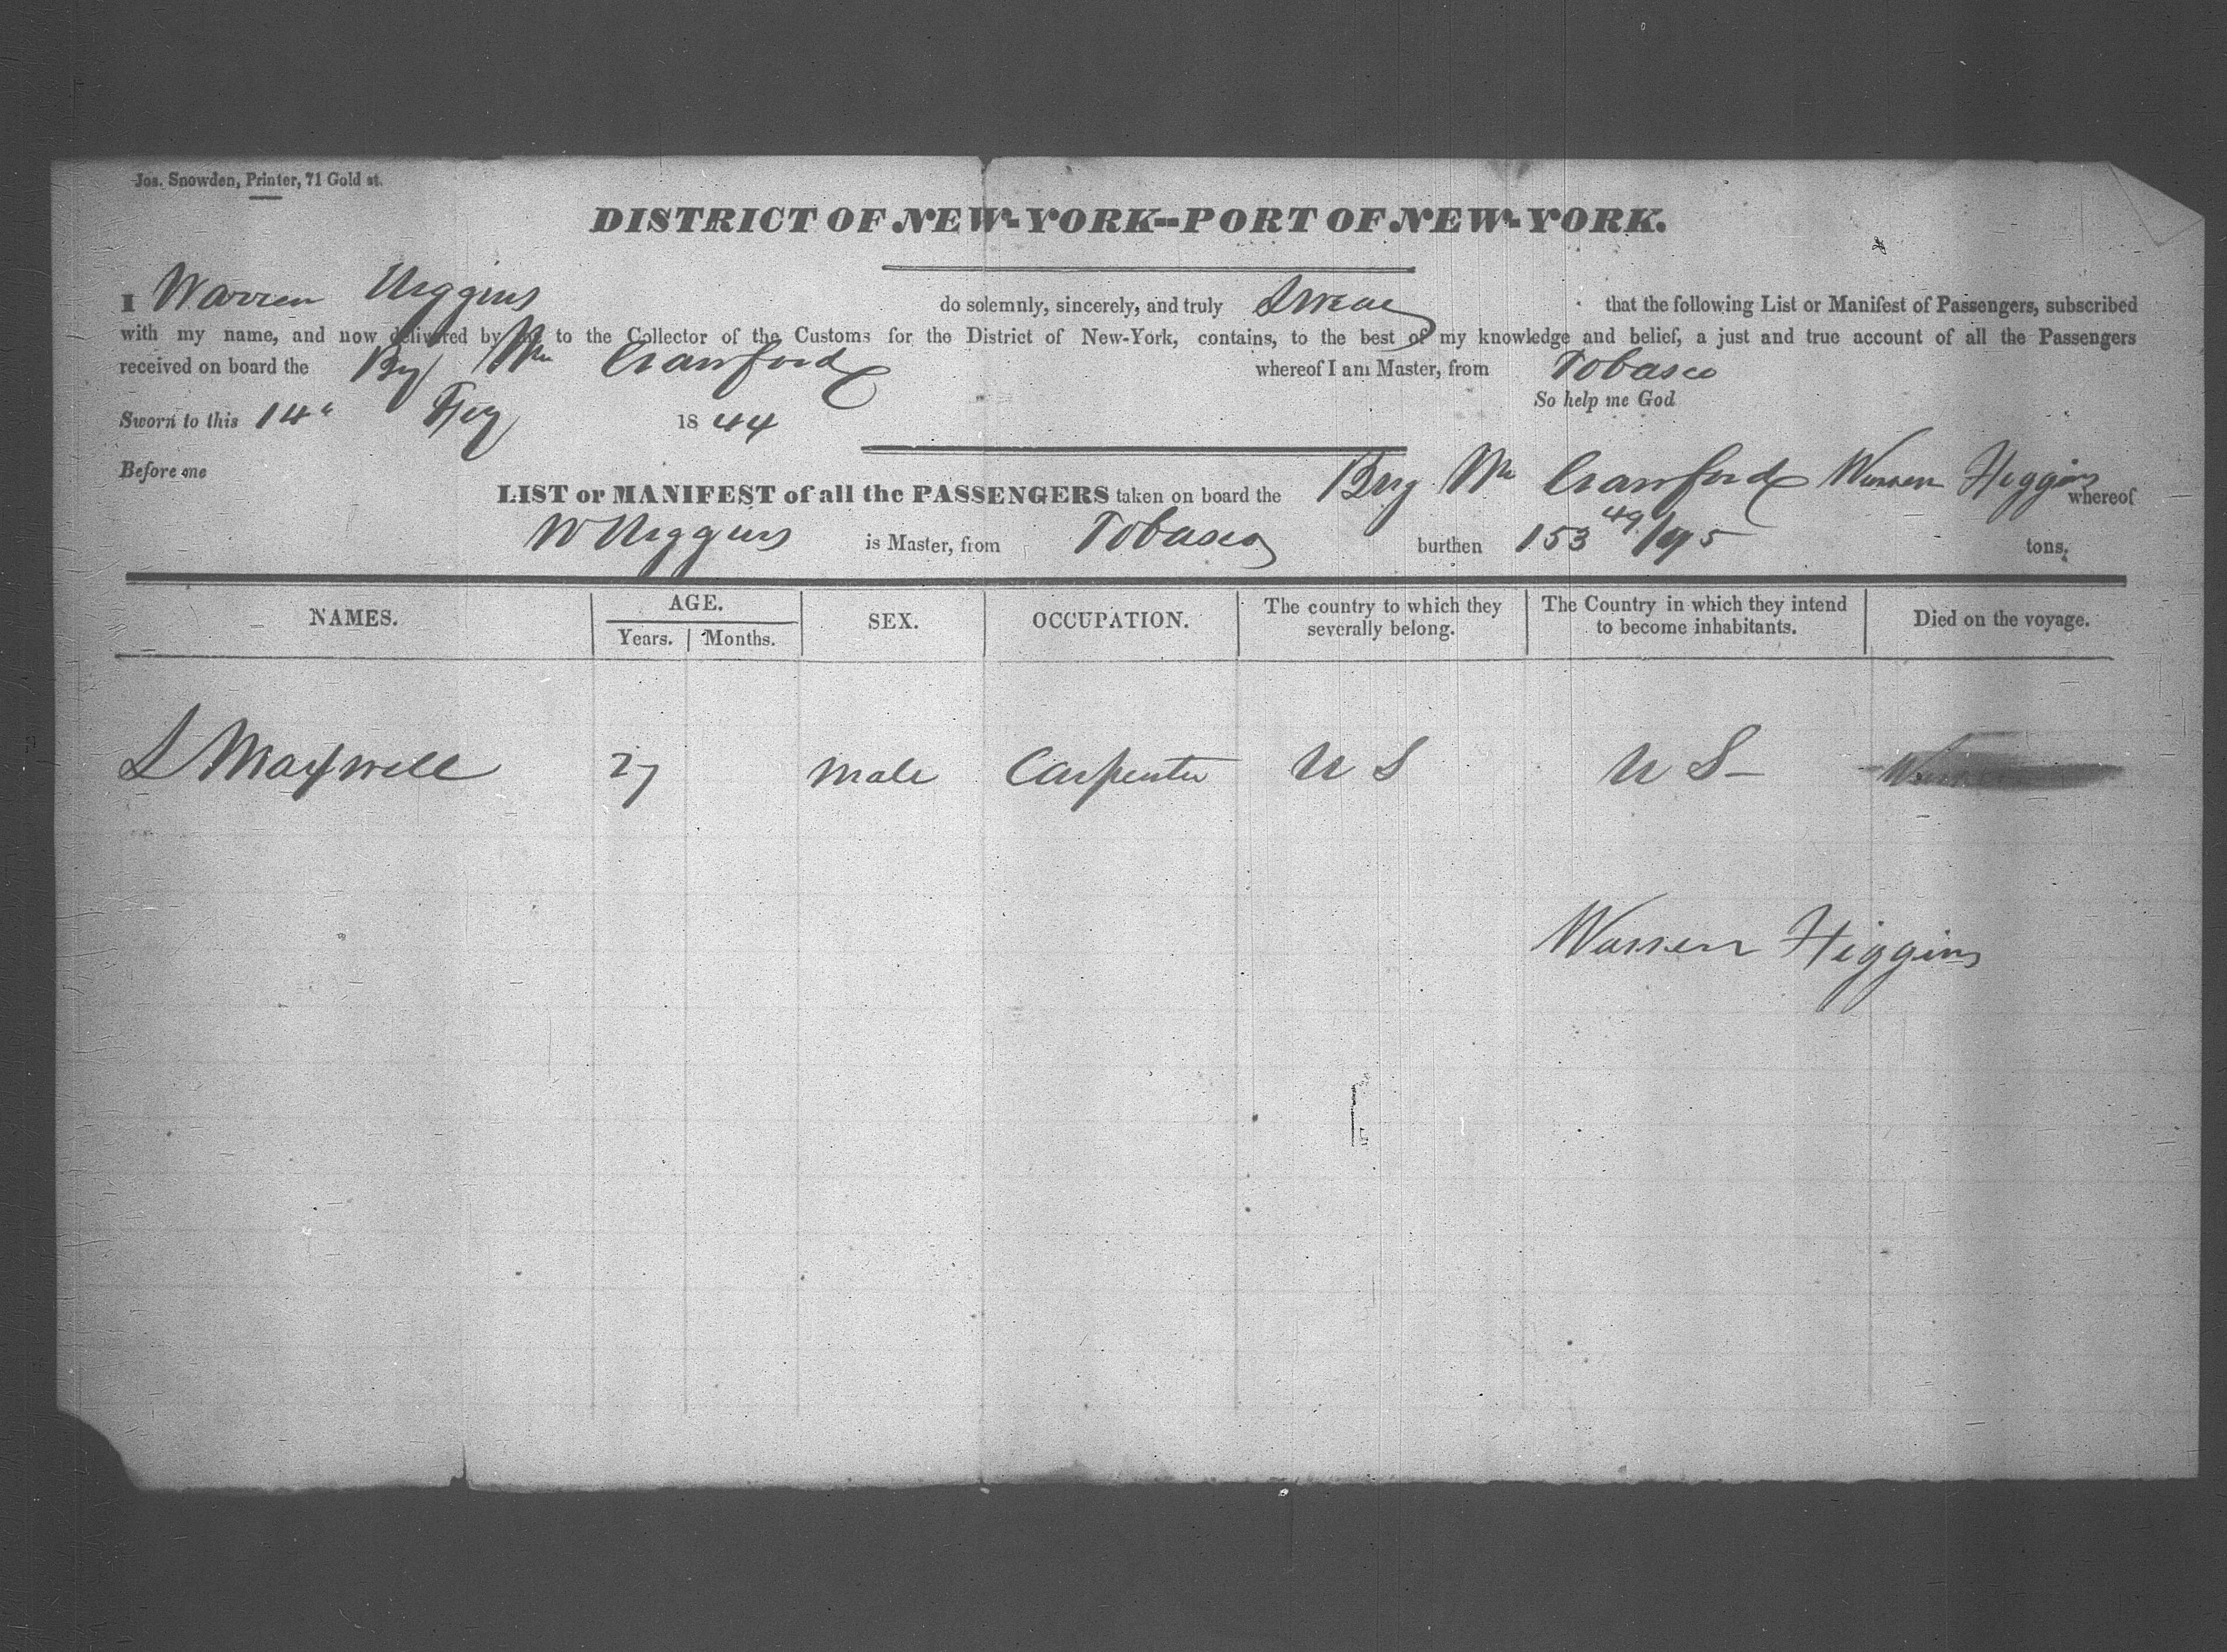 Jos. Snowden, Printer, 71 Gold st.
DISTRICT OF NEW-YORK--PORT OF NEW-YORK.
I Warren Higgins do solemnly, sincerely, and truly Swear that the following List or Manifest of Passengers, subscribed
with my name, and now delivered by me to the Collector of the Customs for the District of New-York, contains, to the best of my knowledge and belief, a just and true account of all the Passengers
received on board the Brig Wm Crawford whereof I am Master, from Tobasco
So help me God
Sworn to this 14 1844
Before me
LIST or MANIFEST of all the PASSENGERS taken on board the Brig Wm Crawford Warren Higgins whereof
W Higgins is Master, from Tobasco burthen 153 49/95 tons.
NAMES. AGE. SEX. OCCUPATION. The country to which they severally belong. The Country in which they intend to become inhabitants. Died on the voyage.
Years. Months.
L Maxwell 27 male Carpenter U S U S
Warren Higgins